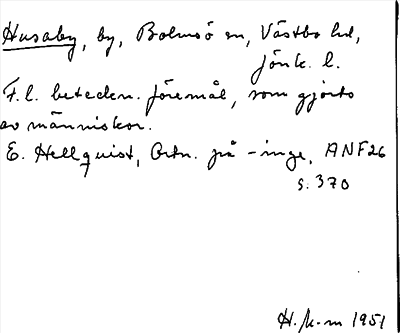 Husaby, by, Bolmsö sn, Västbo hd,
Jönk. l.
F.l. beteckn. föremål, som gjorts
av människor.
E. Hellquist, Ortn. på -inge, ANF 26
s. 370
H. k-m 1951